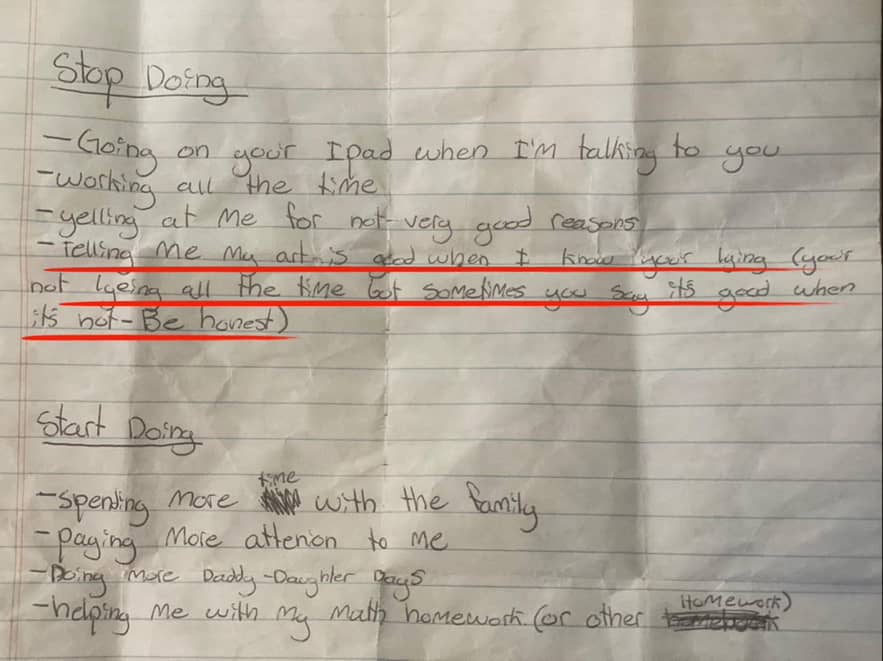 Stop Doing
- Going on your Ipad when I'm talking to you
- working all the time
- yelling at me for not very good reasons
- Telling me my art is good when I know your lying (your
not lyeing all the time but sometimes you say its good when
it's not - Be honest)
Start Doing
- spending more time with the family
- paying more attenion to me
- Doing more Daddy-Daughter Days
- helping me with my math homework (or other Homework)